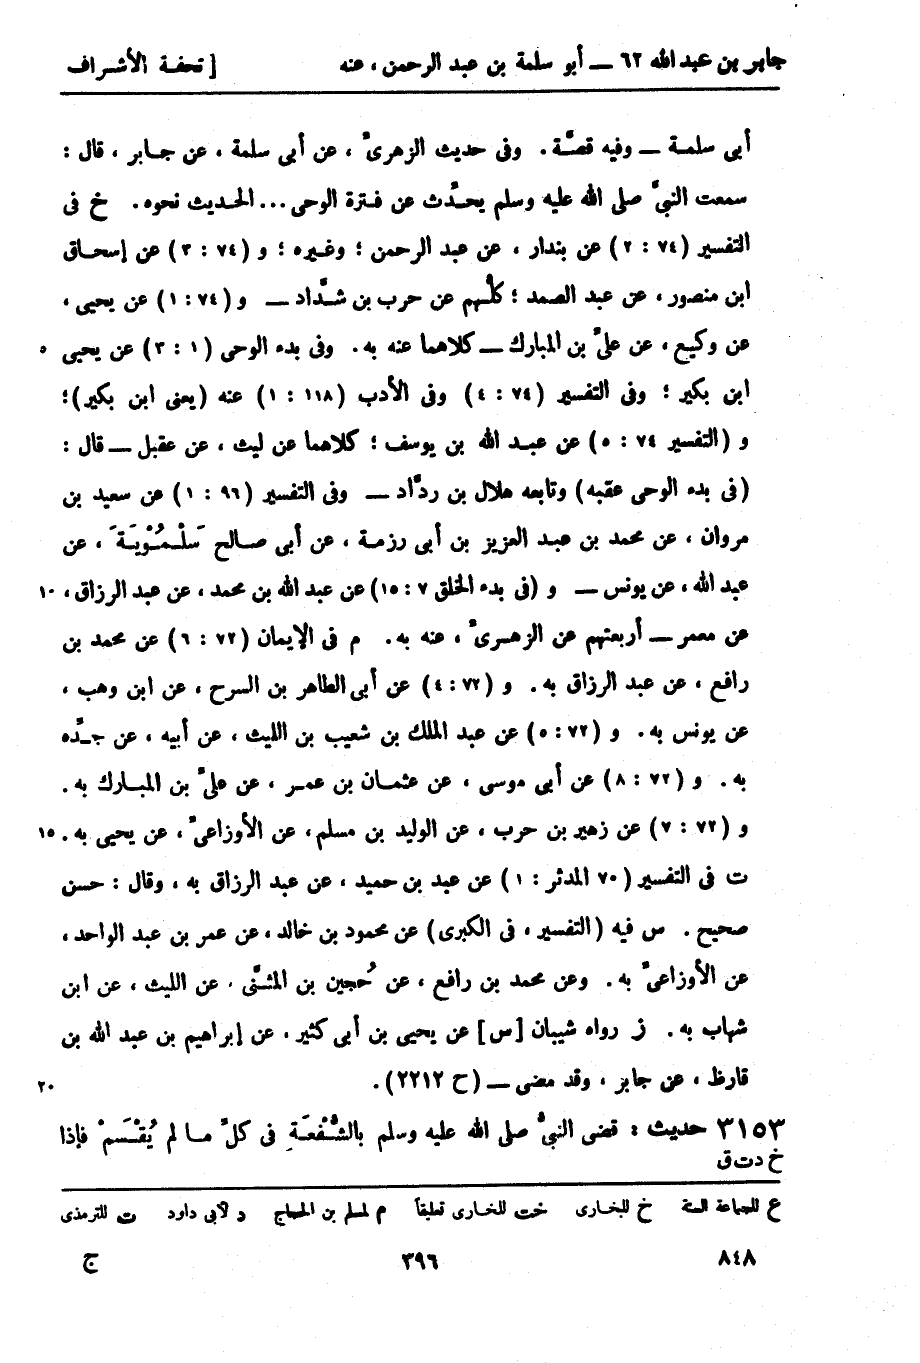 جابر بن عبد الله ٦٢ — أبو سلمة بن عبد الرحمن، عنه [ تحفة الأشراف
أبى سلمة — وفيه قصَّة. وفى حديث الزهرىّ، عن أبى سلمة، عن جابر، قال:
سمعت النبىَّ صلى الله عليه وسلم يحدِّث عن فترة الوحى... الحديث نحوه. خ فى
التفسير (٧٤ : ٢) عن بندار، عن عبد الرحمن؛ وغيره؛ و (٧٤ : ٣) عن إسحاق
ابن منصور، عن عبد الصمد؛ كلُّهم عن حرب بن شدَّاد — و (٧٤ : ١) عن يحيى،
عن وكيع، عن علىّ بن المبارك — كلاهما عنه به. وفى بدء الوحى (١ : ٣) عن يحيى ٥
ابن بكير؛ وفى التفسير (٧٤ : ٤) وفى الأدب (١١٨ : ١) عنه (يعنى ابن بكير)؛
و (التفسير ٧٤ : ٥) عن عبد الله بن يوسف؛ كلاهما عن ليث، عن عقيل — قال:
(فى بدء الوحى عقبه) وتابعه هلال بن ردَّاد — وفى التفسير (٩٦ : ١) عن سعيد بن
مروان، عن محمد بن عبد العزيز بن أبى رزمة، عن أبى صالح سَلْمُوْيَةَ، عن
عبد الله، عن يونس — و (فى بدء الخلق ٧ : ١٥) عن عبد الله بن محمد، عن عبد الرزاق، ١٠
عن معمر — أربعتهم عن الزهرىّ، عنه به. م فى الإيمان (٧٢ : ٦) عن محمد بن
رافع، عن عبد الرزاق به. و (٧٢ : ٤) عن أبى الطاهر بن السرح، عن ابن وهب،
عن يونس به. و (٧٢ : ٥) عن عبد الملك بن شعيب بن الليث، عن أبيه، عن جدِّه
به. و (٧٢ : ٨) عن أبى موسى، عن عثمان بن عمر، عن علىّ بن المبارك به.
و (٧٢ : ٧) عن زهير بن حرب، عن الوليد بن مسلم، عن الأوزاعىّ، عن يحيى به. ١٥
ت فى التفسير (٧٠ المدثر : ١) عن عبد بن حميد، عن عبد الرزاق به، وقال: حسن
صحيح. س فيه (التفسير، فى الكبرى) عن محمود بن خالد، عن عمر بن عبد الواحد،
عن الأوزاعىّ به. وعن محمد بن رافع، عن حُجين بن المثنَّى، عن الليث، عن ابن
شهاب به. ز رواه شيبان [س] عن يحيى بن أبى كثير، عن إبراهيم بن عبد الله بن
قارظ، عن جابر، وقد مضى — (ح ٢٢١٢). ٢٠
٣١٥٣ حديث: قضى النبىُّ صلى الله عليه وسلم بالشُّفْعَةِ فى كلّ ما لم يُقْسَمْ فإذا
خ د ت ق
ع للجماعة الستة خ للبخارى خت للبخارى تعليقاً م لمسلم بن الحجاج د لأبى داود ت للترمذى
٨٤٨ ٣٩٦ ج